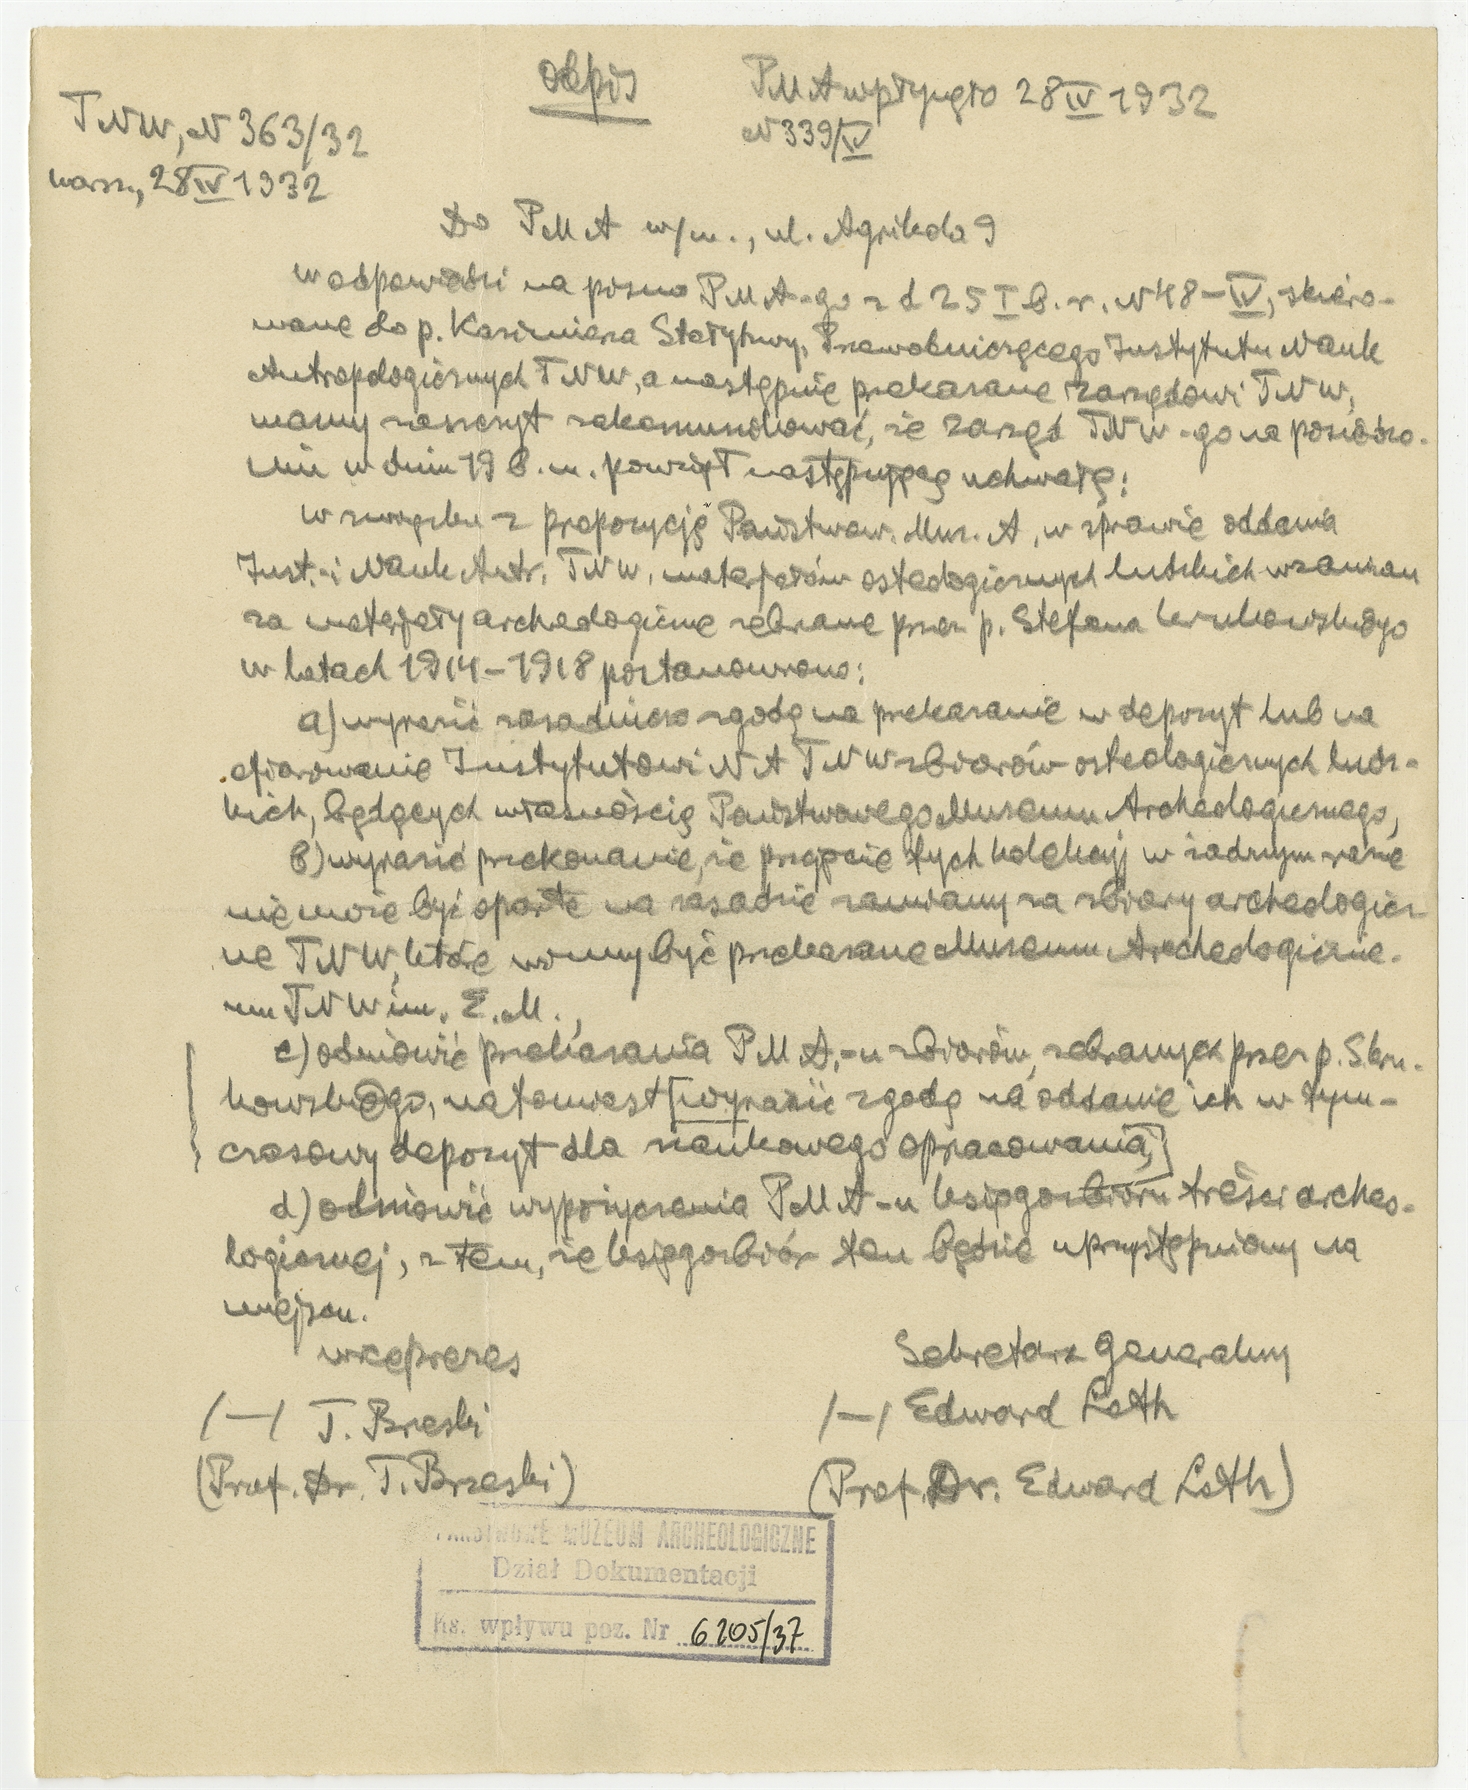 odpis
PMA wpłynęło 28 IV 1932
N 339/IV
TNW, N 363/32
Warsz., 28 IV 1932
Do PMA w/m., ul. Agrikola 9
W odpowiedzi na pismo PMA-go z d 25 I b. r. N 48-IV, skiero-
wane do p. Kazimierza Stołyhwy, Przewodniczącego Instytutu Nauk
Antropologicznych TNW, a następnie przekazane Zarządowi TNW,
mamy zaszczyt zakomunikować, że Zarząd TNW-go na posiedze-
niu w dniu 19 b. m. powziął następującą uchwałę:
W związku z propozycją Państwow. Muz. A, w sprawie oddania
Inst.-i Nauk Antr. TNW, materjałów osteologicznych ludzkich wzamian
za materjały archeologiczne zebrane przez p. Stefana Krukowskiego
w latach 1914-1918 postanowiono:
a) wyrazić zasadniczo zgodę na przekazanie w depozyt lub na
ofiarowanie Instytutowi NA TNW zbiorów osteologicznych ludz-
kich, będących własnością Państwowego Muzeum Archeologicznego,
b) wyrazić przekonanie, że przyjęcie tych kolekcyj w żadnym razie
nie może być oparte na zasadzie zamiany za zbiory archeologicz
ne TNW, które winny być przekazane Muzeum Archeologiczne-
mu TNW im. E. M.,
c) odmówić przekazania PMA,-u zbiorów, zebranych przez p. S. Kru-
kowskiego, natomiast [wyrazić zgodę na oddanie ich w tym-
czasowy depozyt dla naukowego opracowania,]
d) odmówić wypożyczenia PMA-u księgozbioru treści archeo-
logicznej, z tem, że księgozbiór ten będzie uprzystępniony na
miejscu.
wiceprezes
Sekretarz Generalny
/—/ T. Brzeski
/—/ Edward Loth
(Prof. Dr. T. Brzeski)
(Prof. Dr. Edward Loth)
PAŃSTWOWE MUZEUM ARCHEOLOGICZNE
Dział Dokumentacji
Ks. wpływu poz. Nr 6205/37